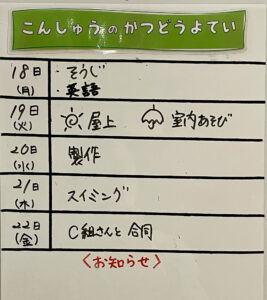 こんしゅうのかつどうよてい
18日
(月)
・そうじ
・英語
19日
(火)
屋上 室内あそび
20日
(水)
製作
21日
(木)
スイミング
22日
(金)
C組さんと 合同
<お知らせ>